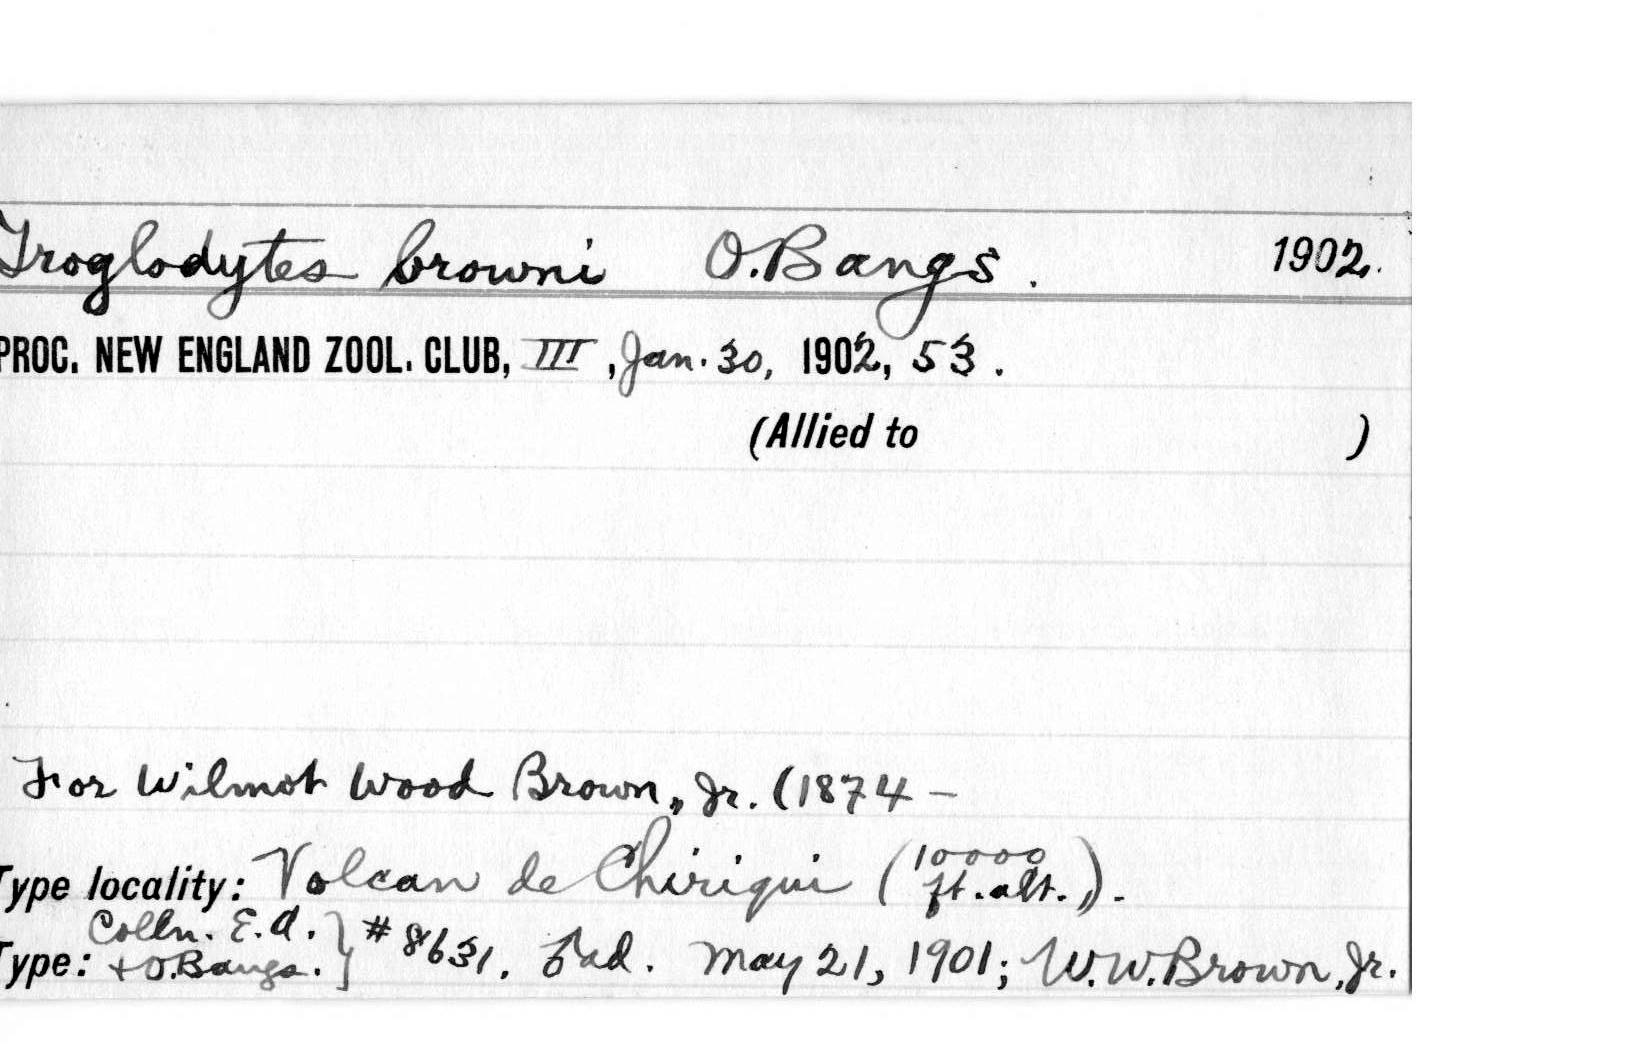 Troglodytes browni O. Bangs. 1902.
PROC. NEW ENGLAND ZOOL. CLUB, III, Jan. 30, 1902, 53.
(Allied to )
For Wilmot Wood Brown, Jr. (1874 –
Type locality: Volcan de Chiriqui (10000 ft. alt.).
Type: Colln. E.A. + O. Bangs. } # 8631. ad. May 21, 1901; W.W. Brown, Jr.